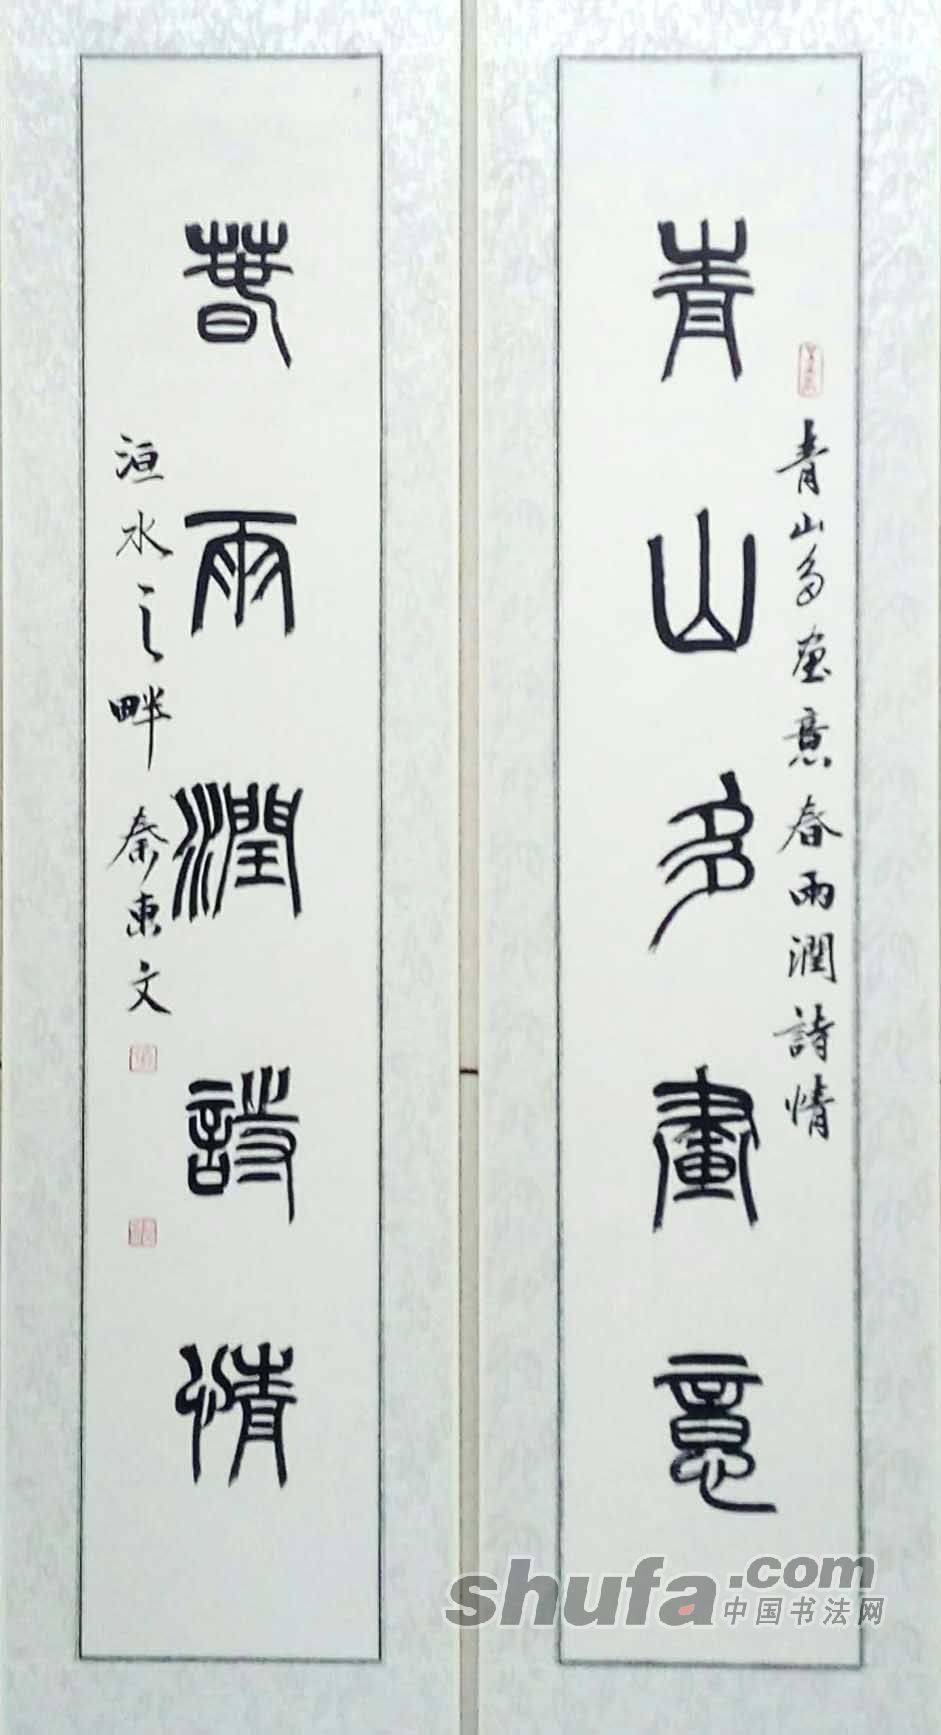 青山多畫意
青山多畫意春雨潤詩情
春雨潤詩情
洹水之畔秦東文
shufa.com
中国书法网